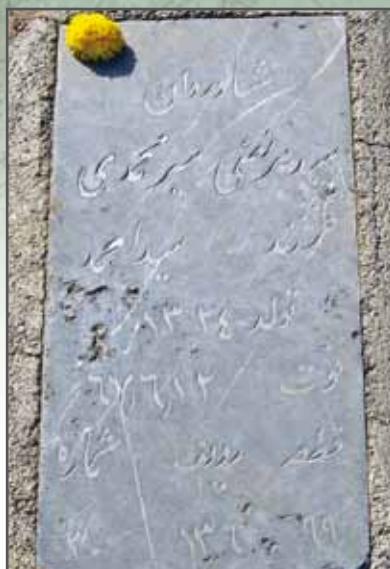 شادروان
سید مرتضی میرمحمدی
فرزند سیداحمد
تولد ۱۳۲٤
فوت ٦٧/٦/١٢
قطعه ردیف شماره
٦٩